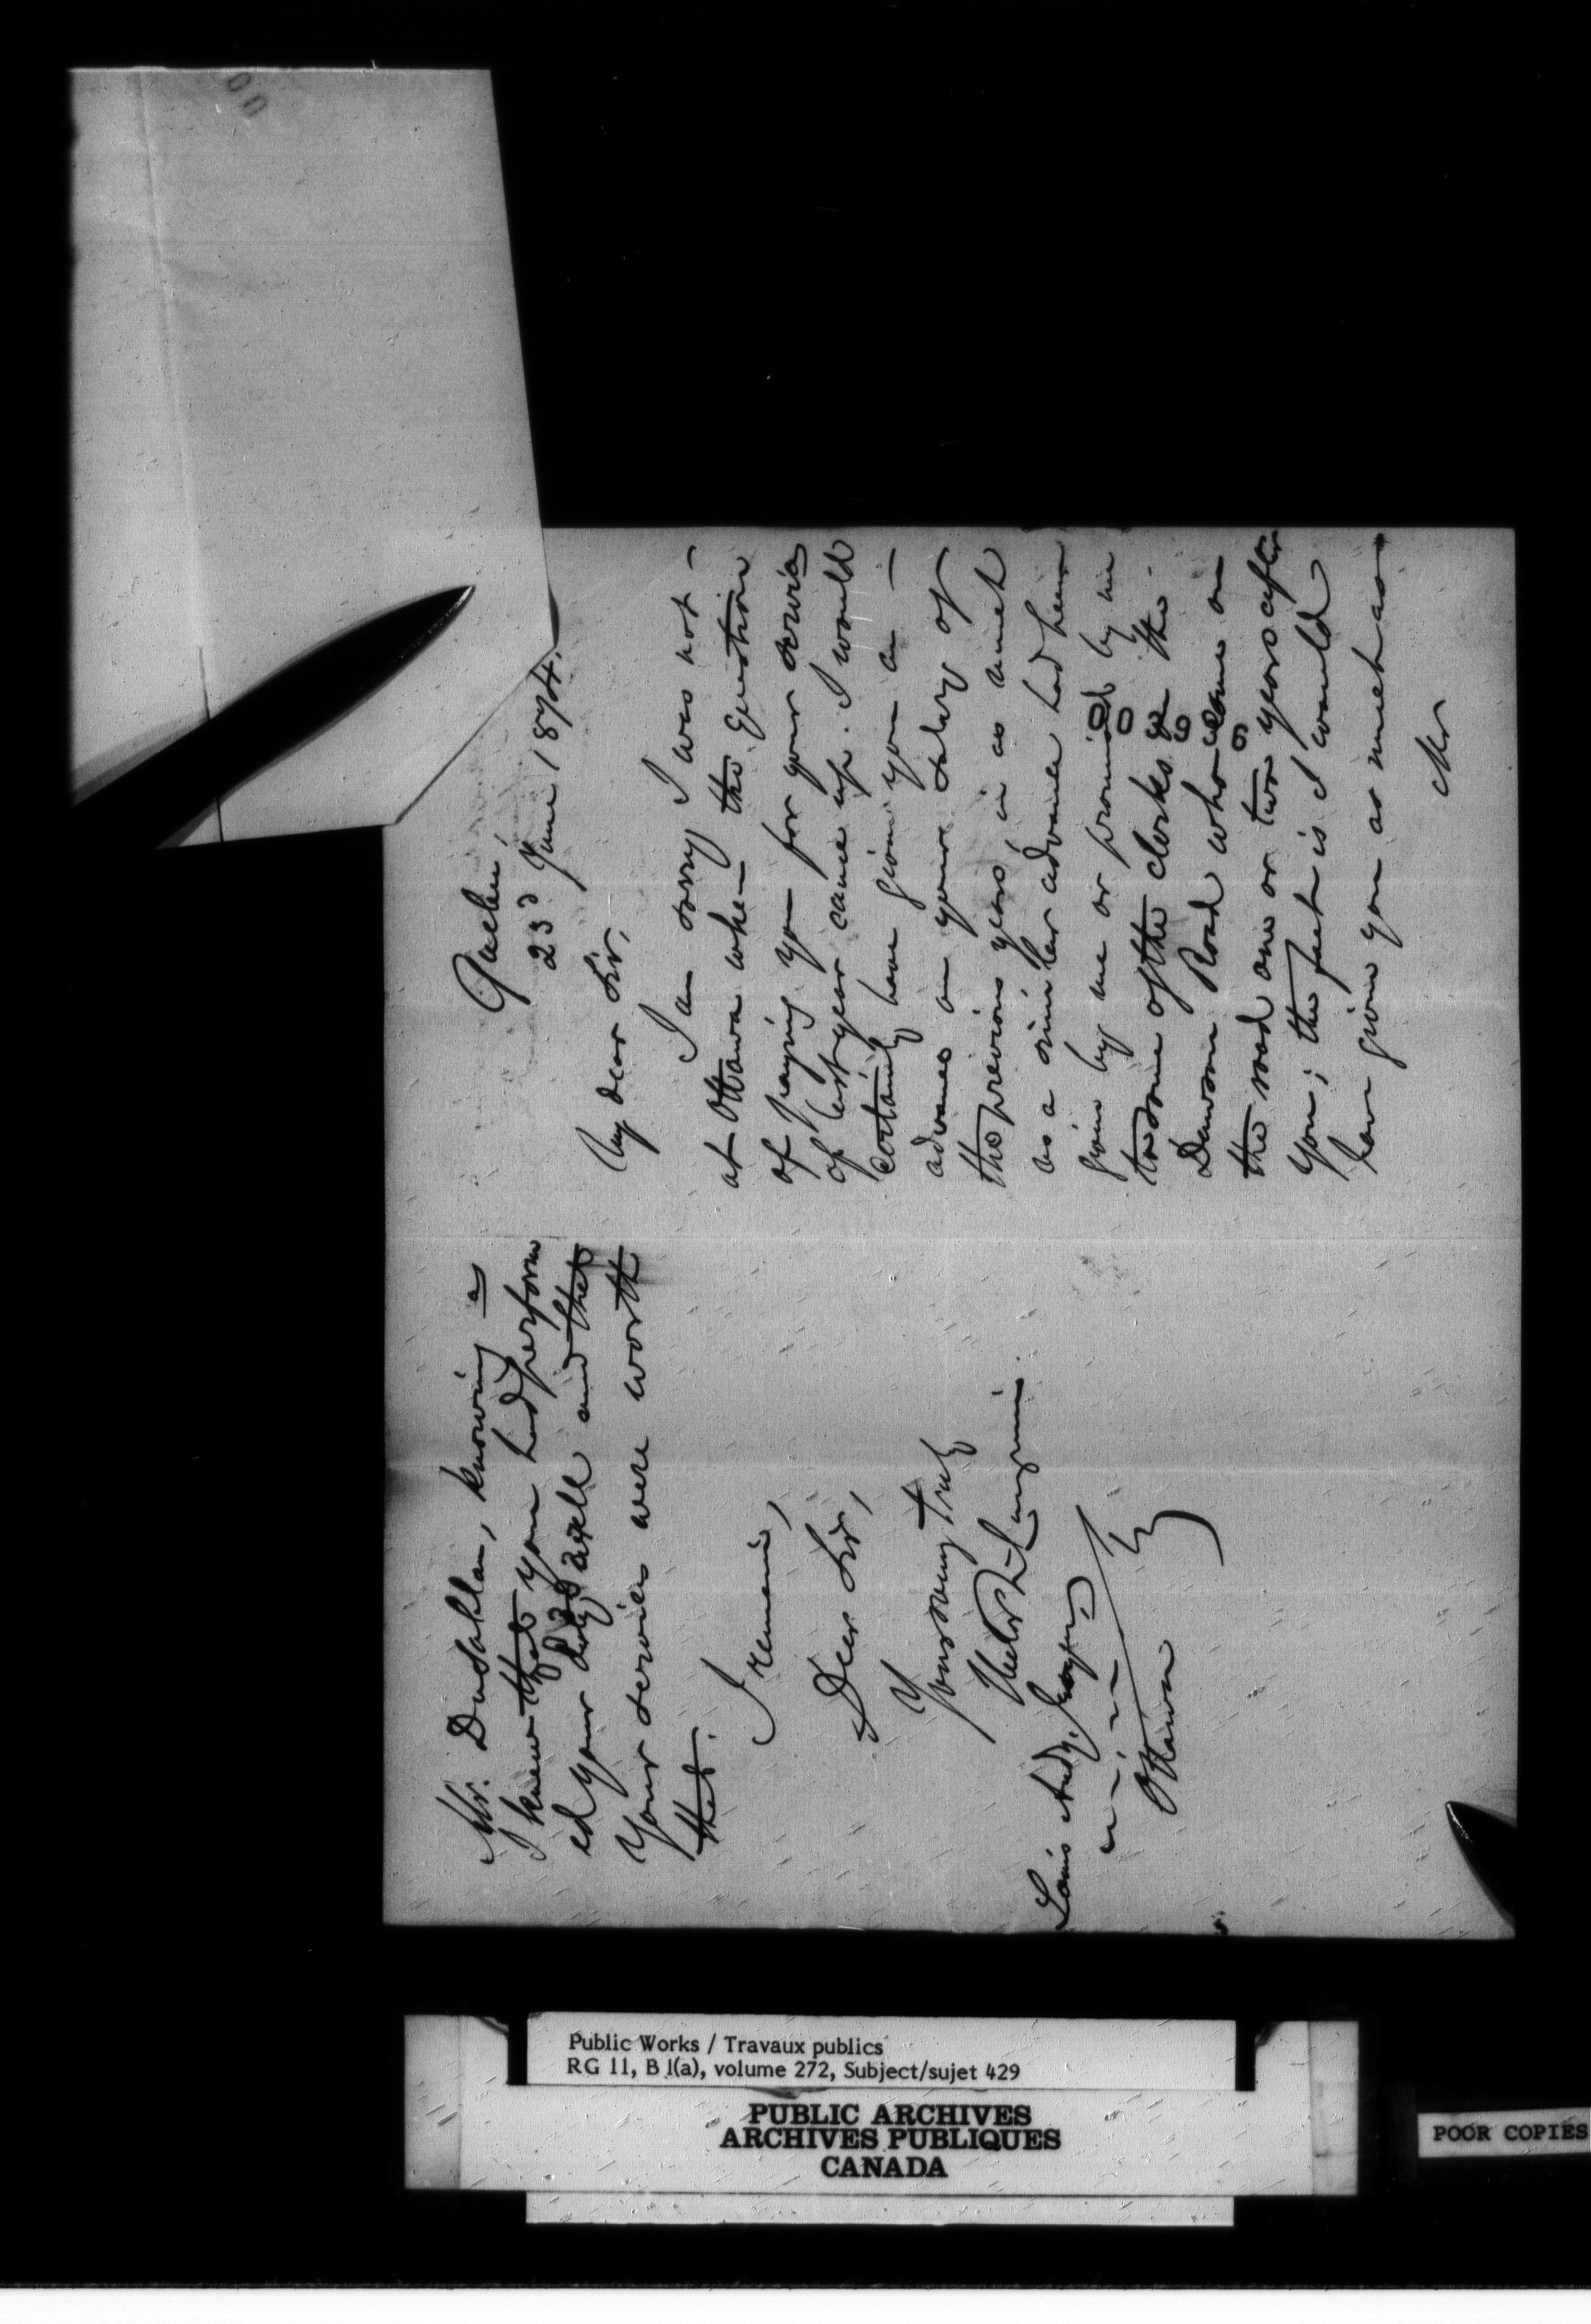 Quebec,
23d June 1874.
My dear Sir,
I am sorry I was not
at Ottawa when the question
of paying you for your services
of last year came up. I would
certainly have given you an
advance on your salary of
the previous years, in as much
as a similar advance had been
given by me or promised by me
to some of the clerks on the
Dawson Road who came on
the road one or two years after
you; the fact is I would
have given you as much as
Mr
Mr. , knowing as
I knew that you had perform
ed your duty well and that
Your services were worth
that.
I remain,
Dear Sir,
Yours very truly
Hector L. Langevin.
Louis Esquire,
Ottawa
00396
Public Works / Travaux publics
RG 11, B 1(a), volume 272, Subject/sujet 429
PUBLIC ARCHIVES
ARCHIVES PUBLIQUES
CANADA
POOR COPIES